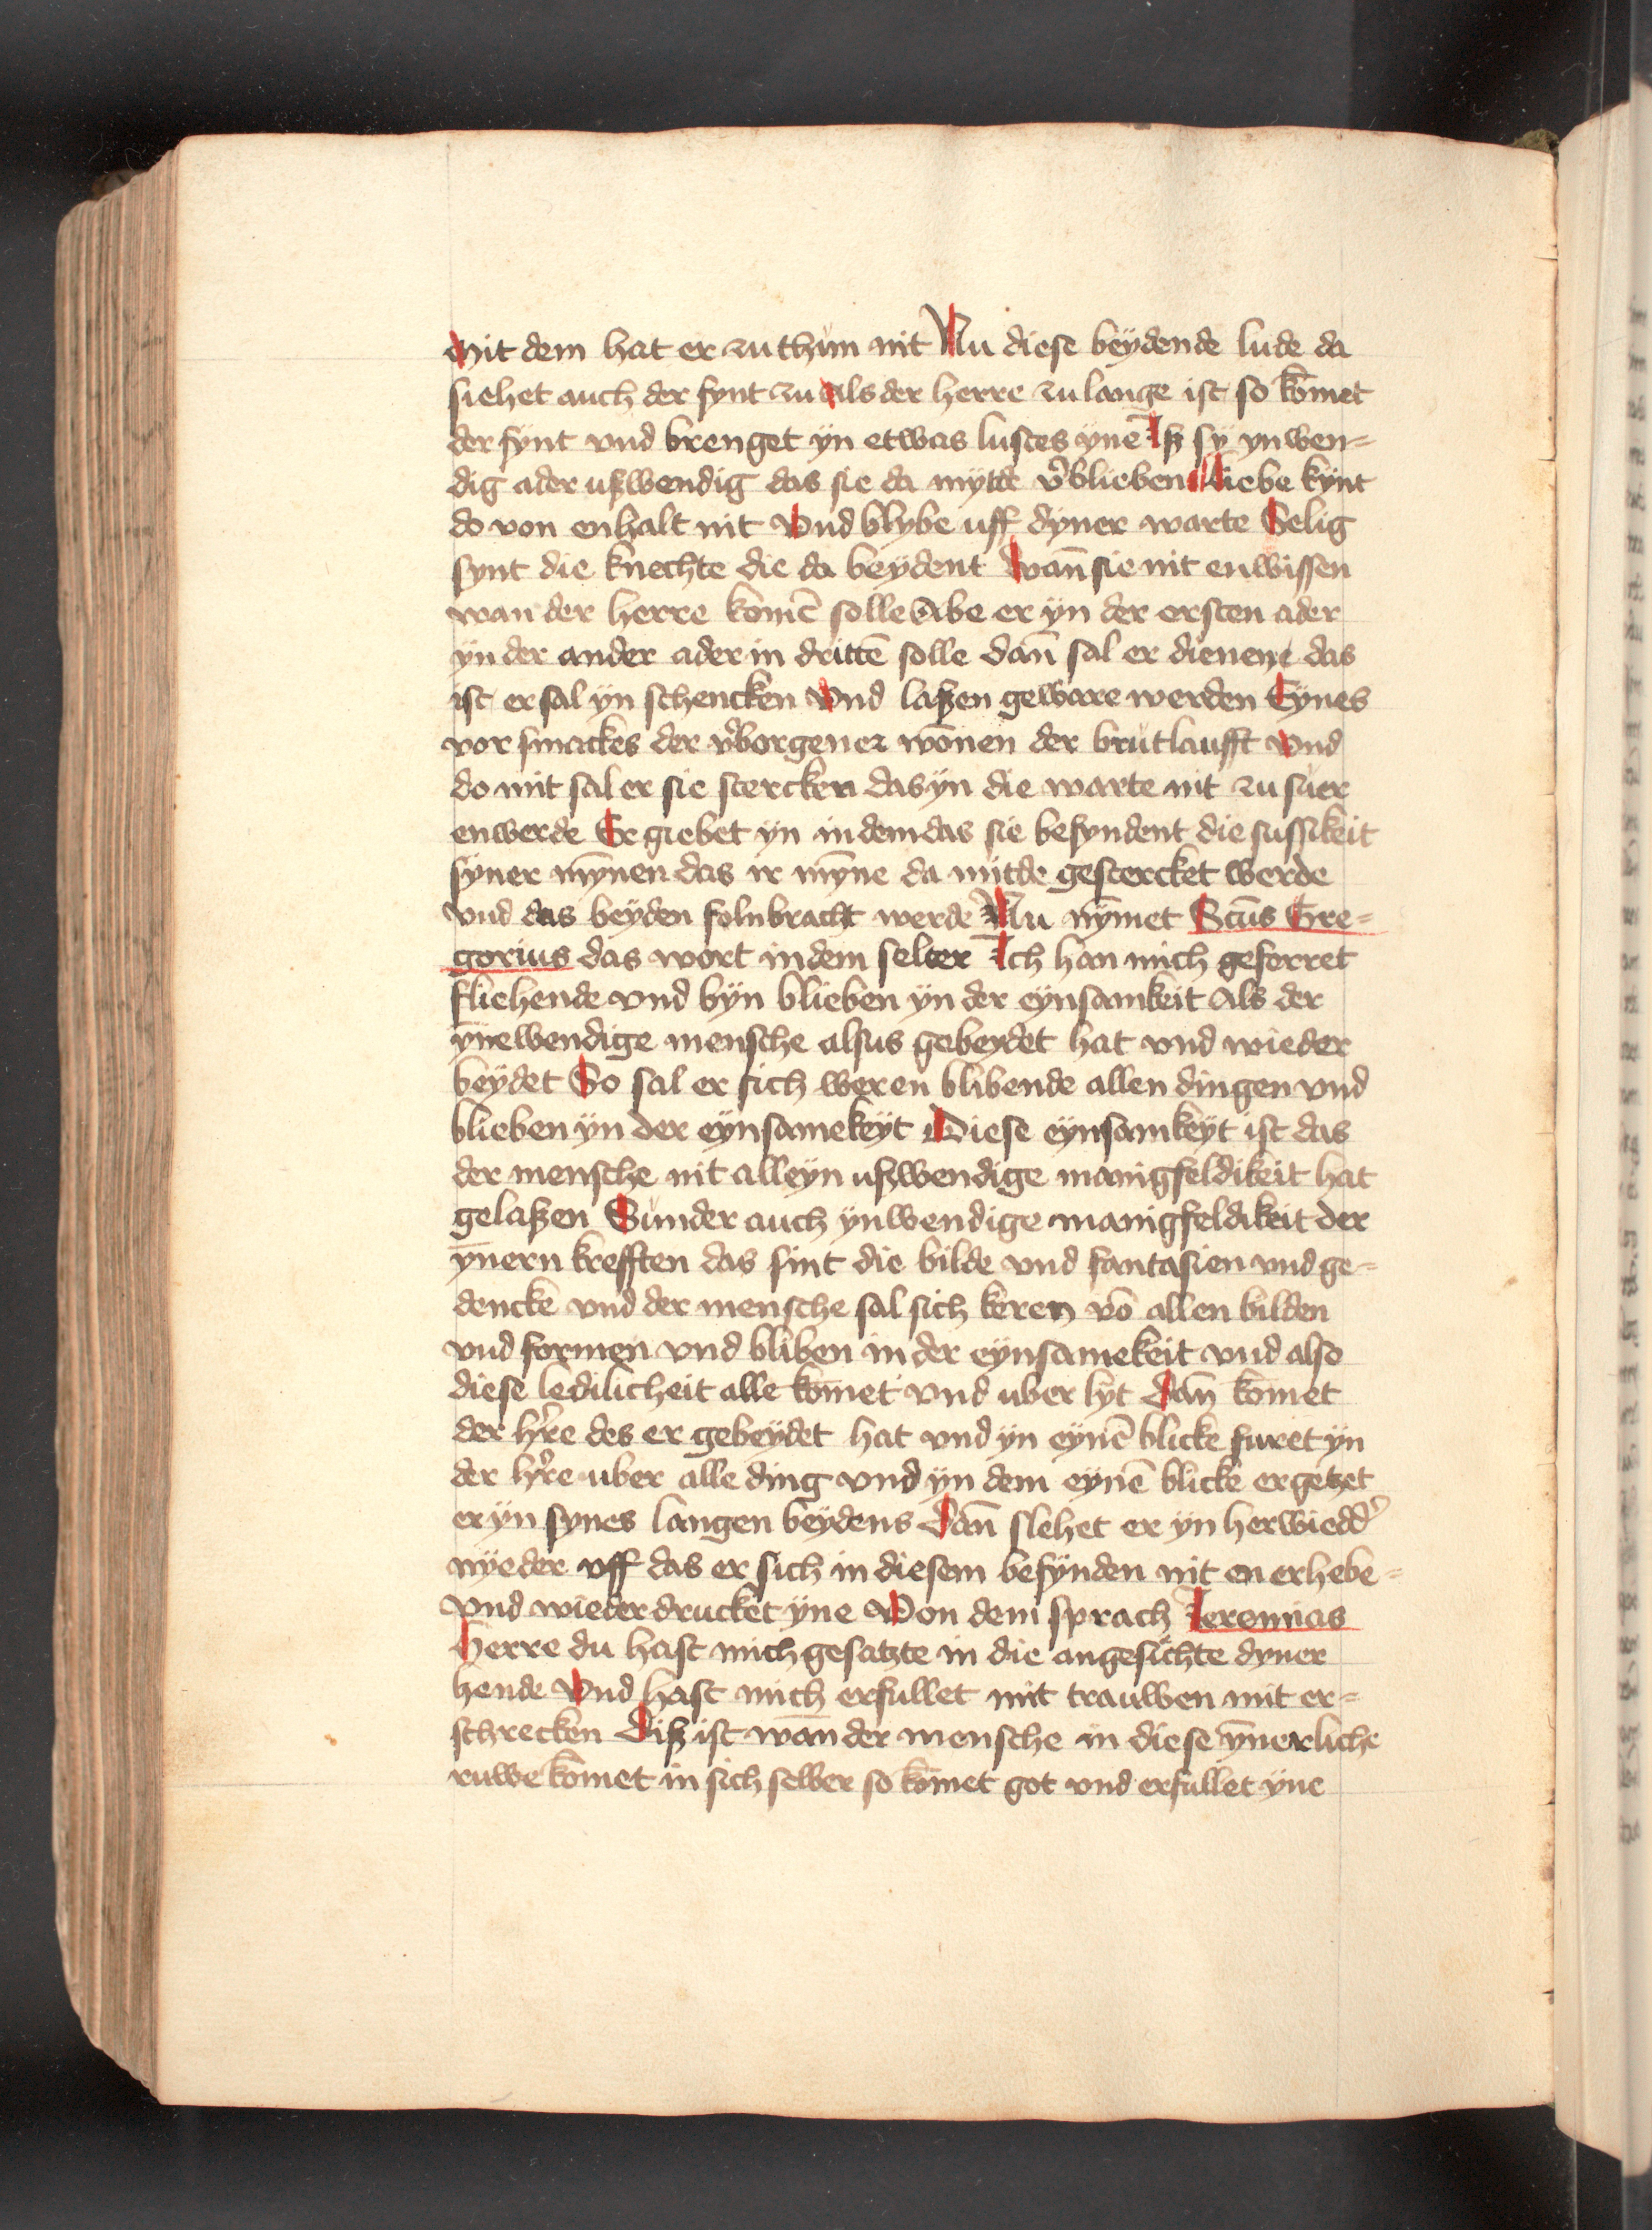 Mit dem hat er zu thun nit Nu diese beÿdende lude da
siehet auch der fynt zu Als der herre zu lange ist so kōmet
der fÿnt vnd brenget ÿn etwas lustes ÿnē Iß sÿ ynwen=
dig ader ußwendig das sie da mÿtde v̾blieben Liebe kÿnt
do von enhalt nit Vnd blybe uff dyner warte Selig
synt die knechte die da beÿdent Wan̄ sie nit enwissen
wan der herre komē solle Abe er ÿn der ersten ader
ÿn der ander ader in drittē solle Dan̄ sal er dienen das
ist er sal ÿn schencken Vnd laßen geware werden Eÿnes
vor smackes der v̾borgener wōnen der brutlaufft Vnd
do mit sal er sie stercken das ÿn die warte nit zu suer
enwerde Er giebet ÿn in dem das sie befyndent die sussikeit
sÿner mȳnen das ir mȳne da mitde gestercket werde
Vnd das beÿden folnbracht werde Nu nȳmet Sctūs Gre=
gorius das wort in dem selter Ich han mich geferret
fliehende vnd bÿn blieben ÿn der eÿnsamkeit Als der
ȳnewendige mensche alsus gebeydet hat vnd wieder
beÿdet So sal er sich weren blibende allen dingen vnd
blieben ÿn der eÿnsamekeÿt Diese eynsamkeÿt ist das
der mensche nit alleÿn ußwendige manigfeldikeit hat
gelaßen Sunder auch ÿnwendige manigfeldikeit der
ȳnern krefften das sint die bilde vnd fantasien vnd ge=
dencke vnd der mensche sal sich keren vō allen bilden
vnd formen vnd bliben in der eÿnsamekeit vnd also
diese ledilicheit alle kōmet vnd uber lyt Dan̄ kōmet
der h̾re des er gebeÿdet hat vnd ÿn eÿnē blicke furet ÿn
der h̾re uber alle ding vnd ÿn dem eÿnē blicke ergetzet
er ÿn sÿnes langen beÿdens Dan̄ slehet er ÿn herwiedd̾
nÿeder vff das er sich in diesem befÿnden nit en erhebe=
Vnd wieder drucket ÿne Von dem sprach Ieremias
Herre du hast mich gesatzte in die angesichte dyner
hende Vnd hast mich erfullet mit trauwen mit er=
schrecken Diß ist wan̄ der mensche in diese ȳnerliche
ruwe kōmet in sich selber so kōmet got vnd erfullet ÿne